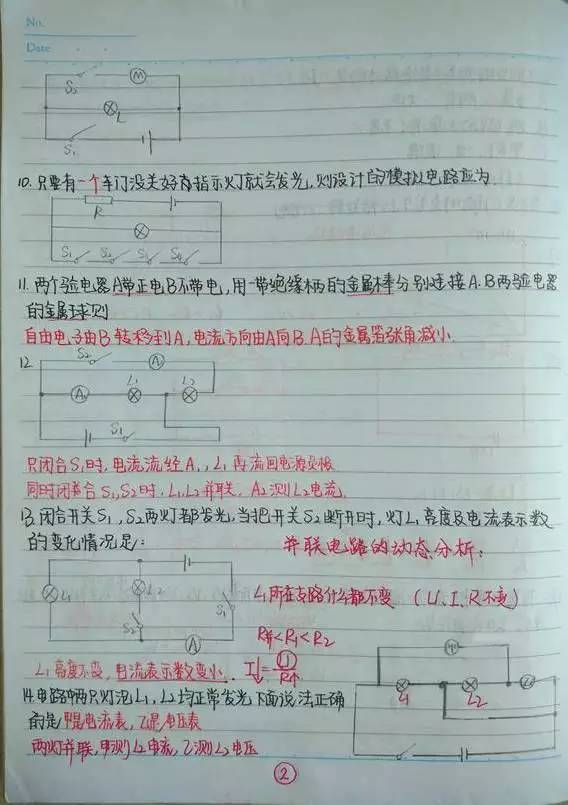 No.
Date
S₂ M
L
S₁
10. 只要有一个车门没关好指示灯就会发光,则设计的模拟电路应为
R
S₁ S₂ S₃ S₄
11. 两个验电器A带正电B不带电,用一带绝缘柄的金属棒分别连接A.B两验电器
的金属球则
自由电子由B转移到A,电流方向由A向B.A的金属箔张角减小.
12
S₂ A
A L₁ L₂
S₁
只闭合S₁时,电流流经A₁,L₁再流回电源负极
同时闭合S₁,S₂时,L₁,L₂并联,A₂测L₂电流,
13. 闭合开关S₁,S₂两灯都发光,当把开关S₂断开时,灯L₁亮度及电流表示数
的变化情况是:
并联电路的动态分析:
L₁ L₂ S₁
S₂
A
L₁所在支路什么都不变 (U、I、R不变)
R并<R₁<R₂
L₁亮度不变,电流表示数变小. I↓=U/R↑
14.电路中两只灯泡L₁,L₂均正常发光下面说法正确
的是甲是电流表,乙是电压表
两灯并联,甲测L₂电流,乙测L₂电压
甲
L₁ L₂ 乙
2